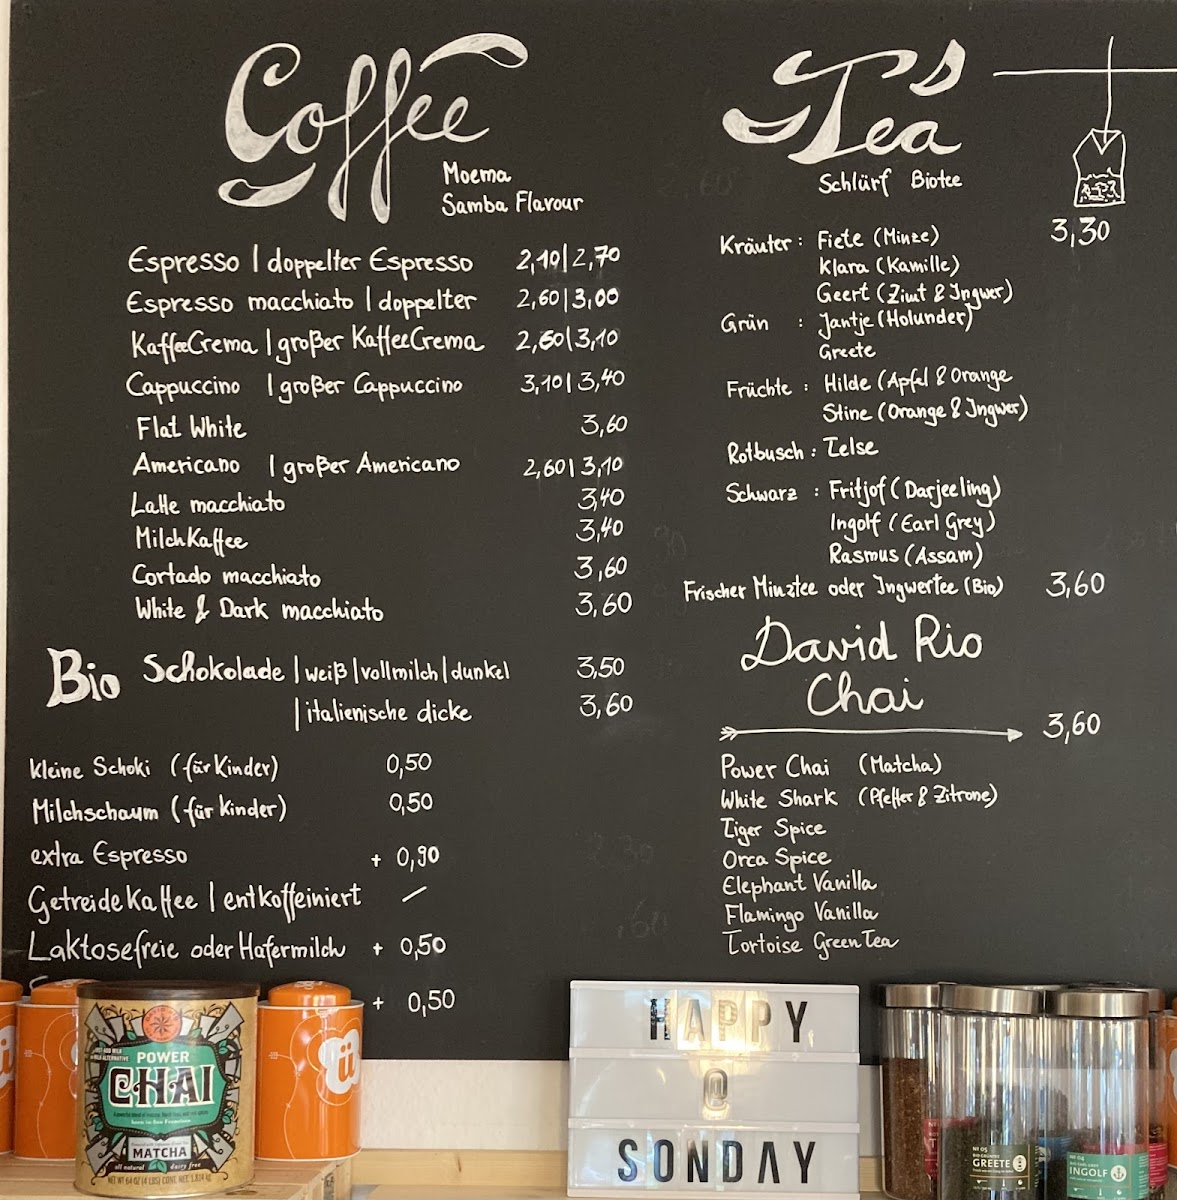 Coffee
Moema
Samba Flavour
Espresso | doppelter Espresso 2,10 | 2,70
Espresso macchiato | doppelter 2,60 | 3,00
KaffeeCrema | großer KaffeeCrema 2,60 | 3,10
Cappuccino | großer Cappuccino 3,10 | 3,40
Flat White 3,60
Americano | großer Americano 2,60 | 3,10
Latte macchiato 3,40
Milchkaffee 3,40
Cortado macchiato 3,60
White & Dark macchiato 3,60
Bio Schokolade | weiß | vollmilch | dunkel 3,50
| italienische dicke 3,60
kleine Schoki (für Kinder) 0,50
Milchschaum (für Kinder) 0,50
extra Espresso + 0,90
Getreidekaffee | entkoffeiniert –
Laktosefreie oder Hafermilch + 0,50
+ 0,50
Tea's
Schlürf Biotee
Kräuter : Fiete (Minze) 3,30
Klara (Kamille)
Geert (Zimt & Ingwer)
Grün : Jantje (Holunder)
Greete
Früchte : Hilde (Apfel & Orange
Stine (Orange & Ingwer)
Rotbusch : Telse
Schwarz : Fritjof (Darjeeling)
Ingolf (Earl Grey)
Rasmus (Assam)
Frischer Minztee oder Ingwertee (Bio) 3,60
David Rio
Chai
3,60
Power Chai (Matcha)
White Shark (Pfeffer & Zitrone)
Tiger Spice
Orca Spice
Elephant Vanilla
Flamingo Vanilla
Tortoise Green Tea
POWER
CHAI
born in San Francisco
MATCHA
all natural dairy free
NET WT 64 OZ (4 LBS) CONT. NET. 1.814 kg
ü
HAPPY
@
SONDAY
Nº 05
GREETE
Nº 04
INGOLF